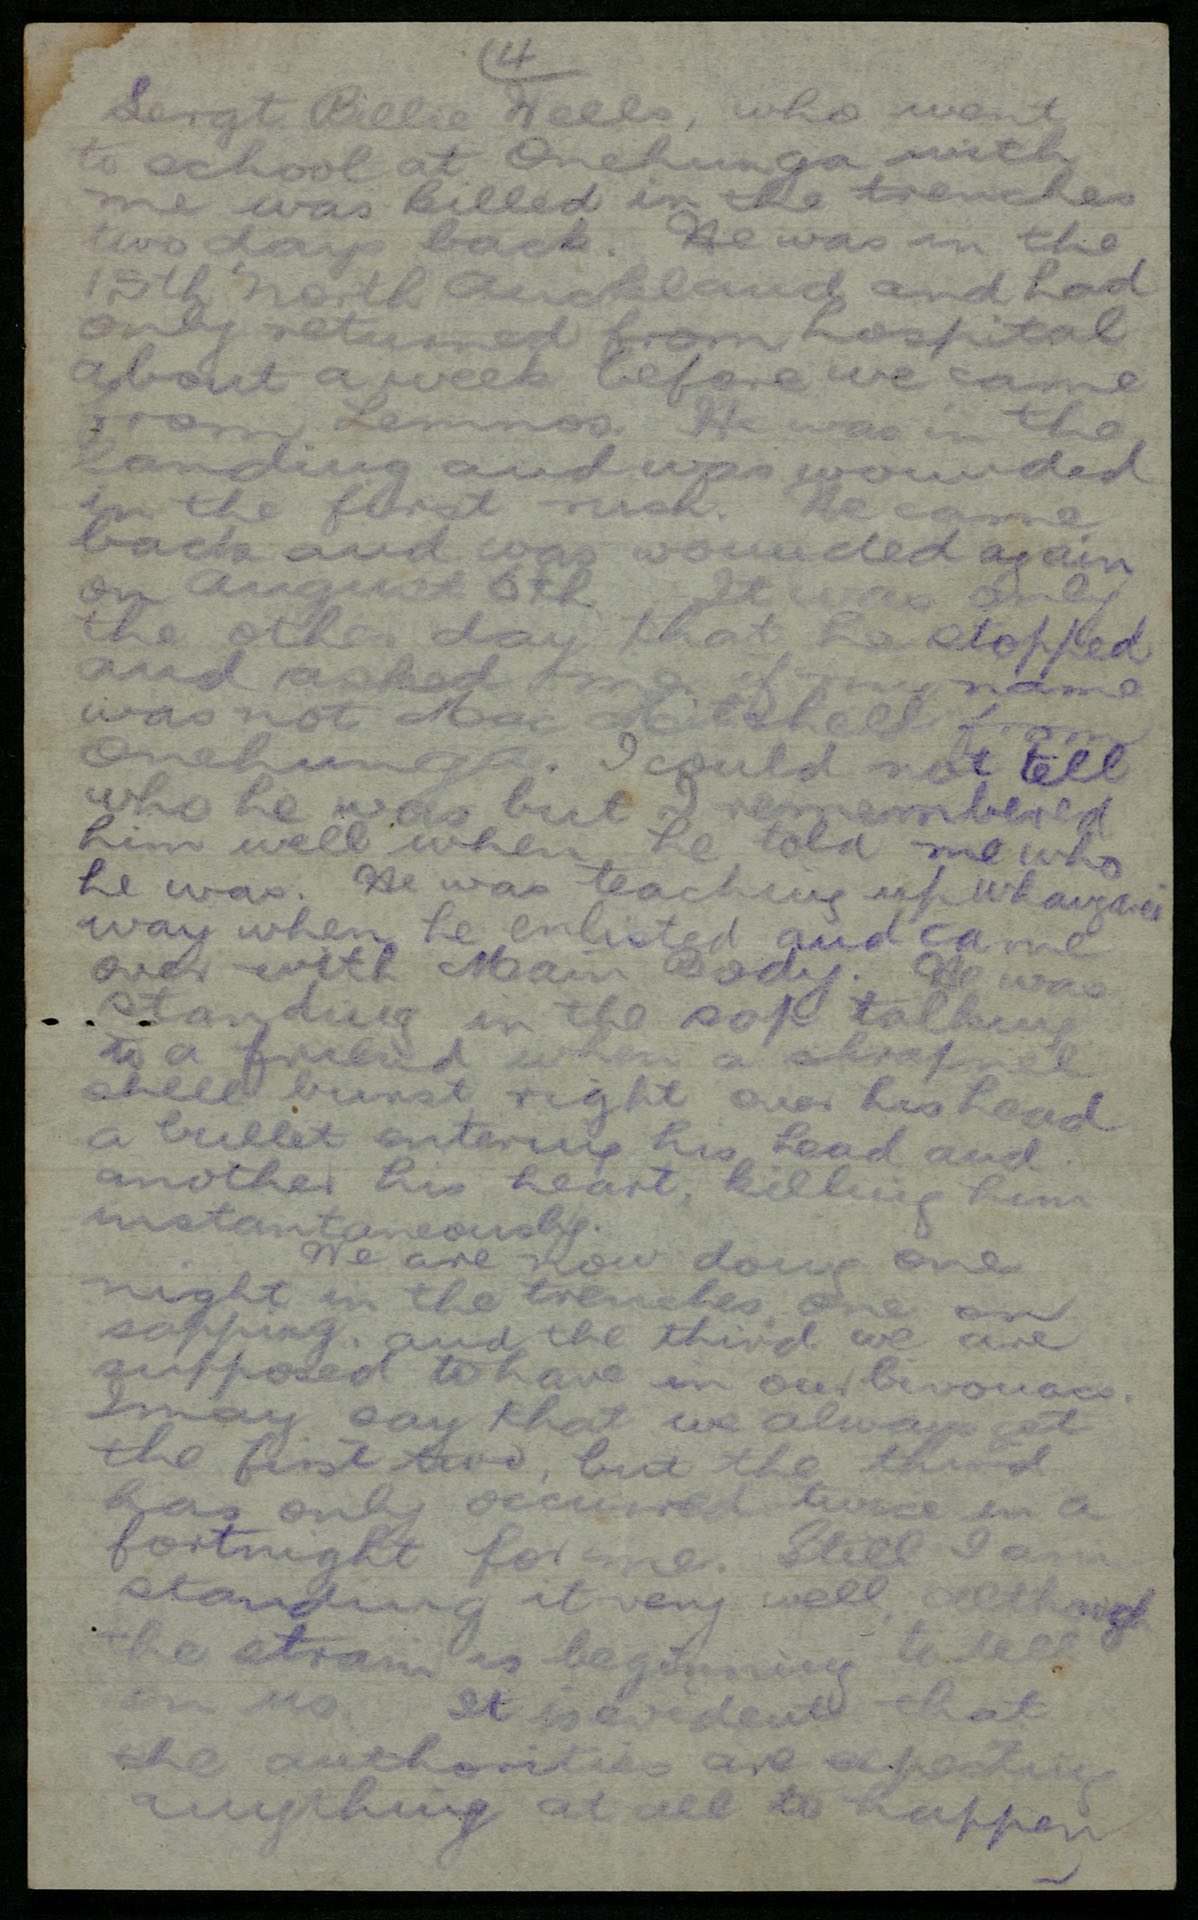 (4
Sergt Billie Wells, who went
to school at Onehunga with
me was killed in the trenches
two days back. He was in the
15th North Auckland and had
only returned from hospital
about a week before we came
from Lemnos. He was in the
landing and was wounded
in the first rush. He came
back and was wounded again
on August 6th It was only
the other day that he stopped
and asked me if my name
was not Mac Mitchell from
Onehunga. I could not tell
who he was but I remembered
him well when he told me who
he was. He was teaching up Whangarei
way when he enlisted and came
over with Main Body. He was
standing in the sap talking
to a friend when a shrapnel
shell burst right over his head
a bullet entering his head and
another his heart, killing him
instantaneously.
We are now doing one
night in the trenches, one on
sapping, and the third we are
supposed to have in our bivouacs.
I may say that we always get
the first two, but the third
has only occurred twice in a
fortnight for me. Still I am
standing it very well, although
the strain is beginning to tell
on us. It is evident that
the authorities are expecting
anything at all to happen